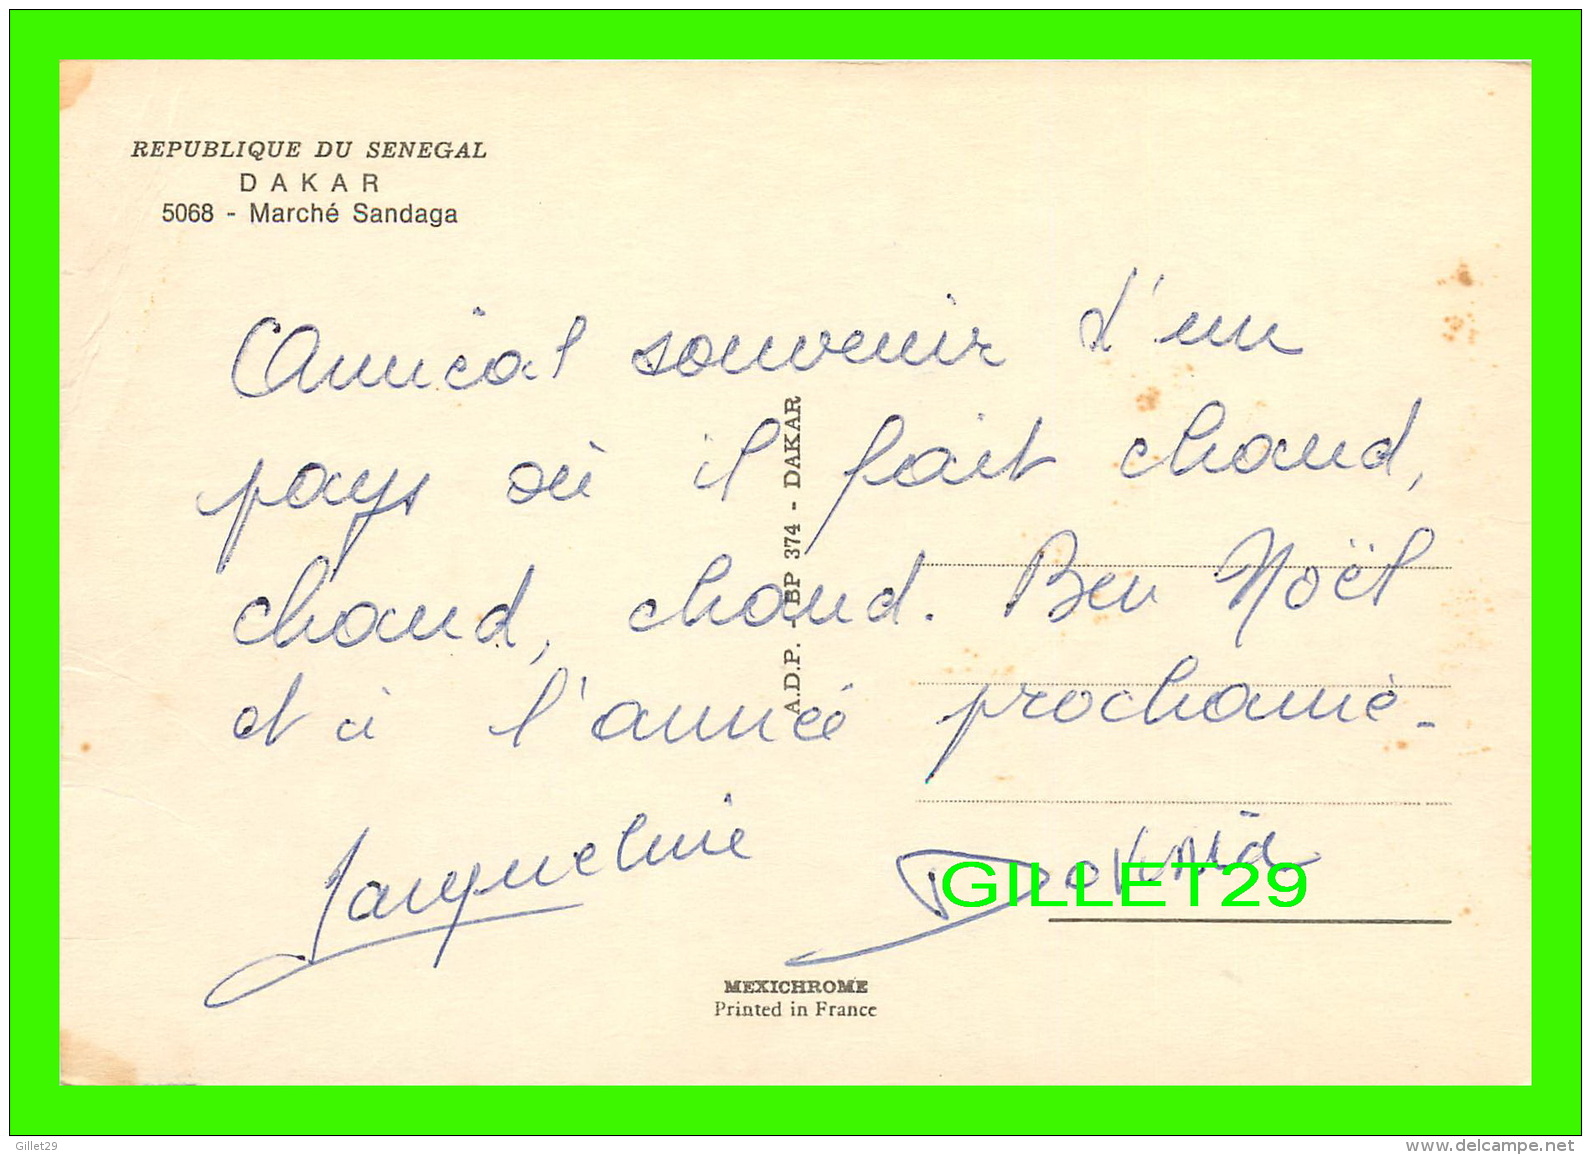 REPUBLIQUE DU SENEGAL
DAKAR
5068 - Marché Sandaga
Amical souvenir d'un
pays où il fait chaud,
chaud, chaud. Bon Noël
et à l'année prochaine.
Jacqueline
A.D.P. - BP 374 - DAKAR
GILLET29
MEXICHROME
Printed in France
Gillet29
www.delcampe.net